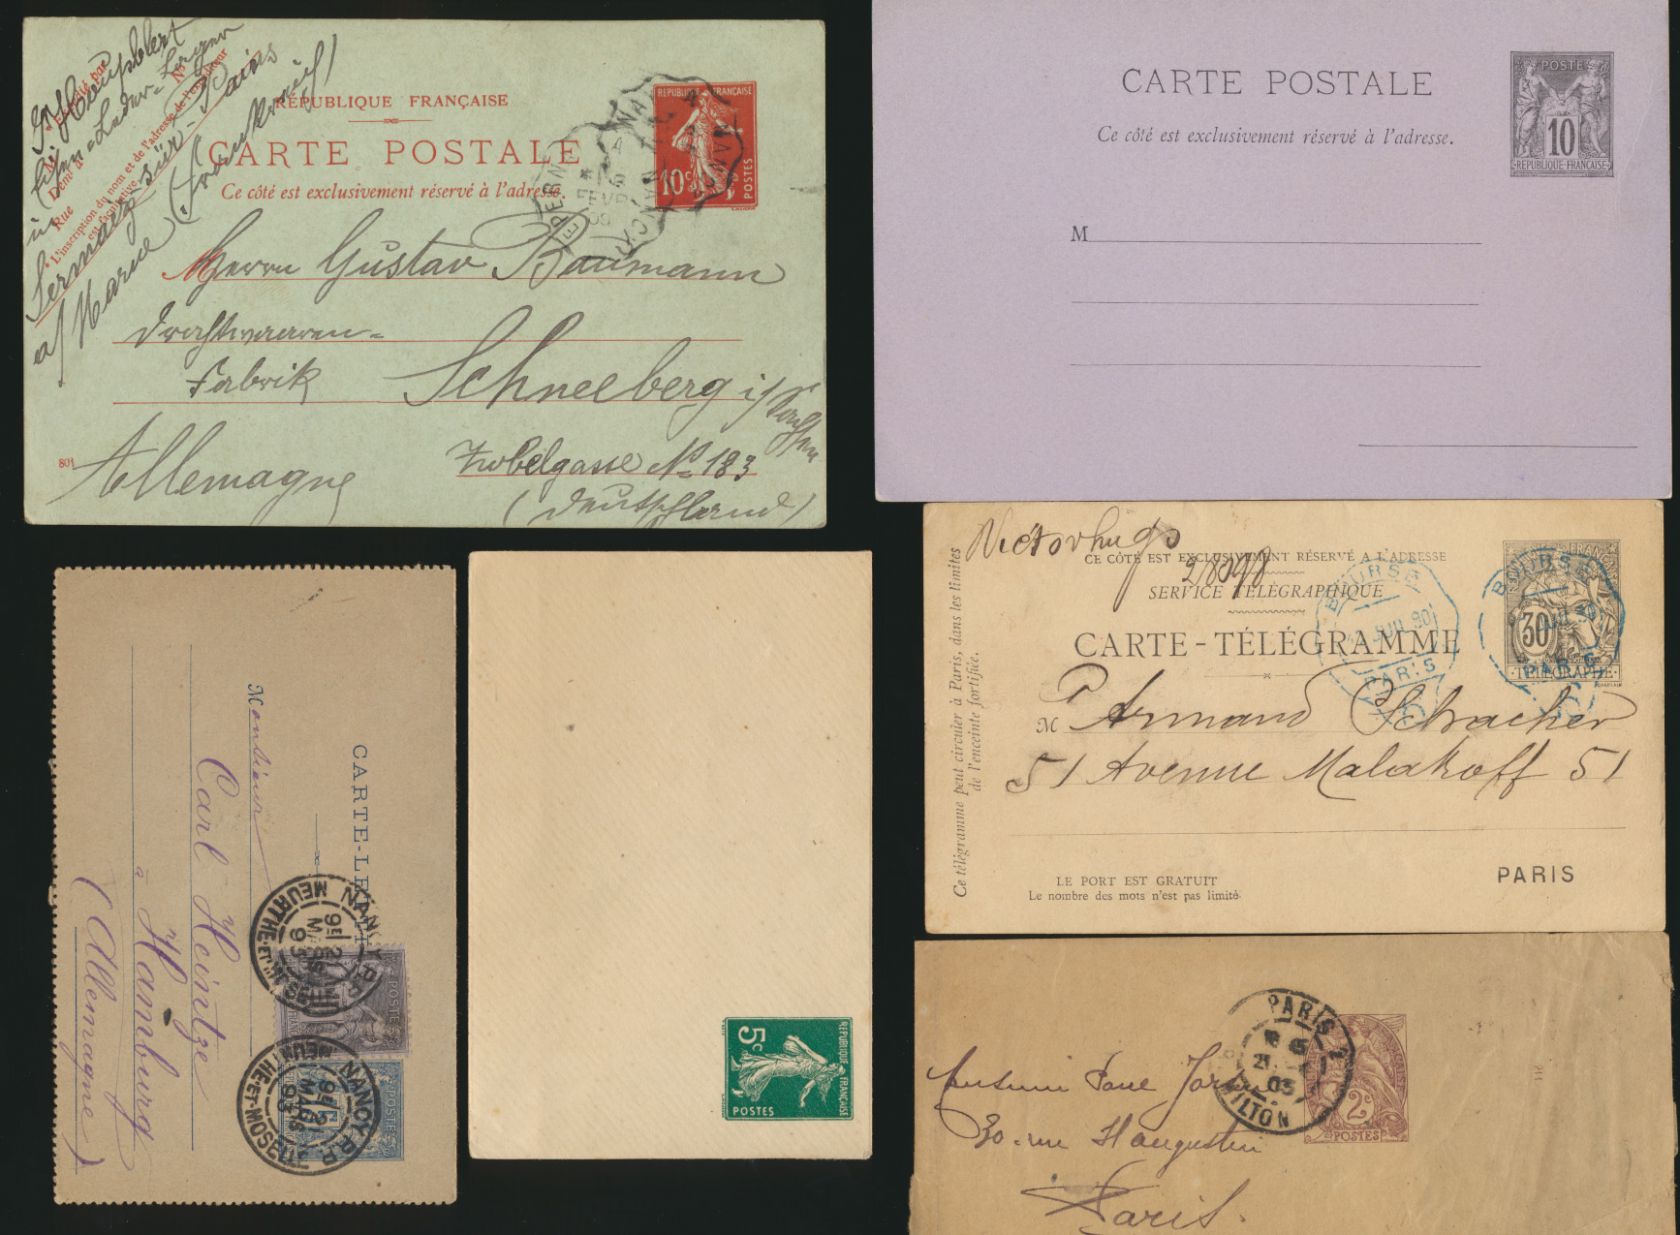 RÉPUBLIQUE FRANÇAISE
CARTE POSTALE
Ce côté est exclusivement réservé à l'adresse.
Expédié par
L'inscription du nom et de l'adresse de l'expéditeur
est facultative.
Rue
Nº
Sermaize-sür-
a/ Marne (Frankreich)
RÉPUBLIQUE FRANÇAISE
10 c
POSTES
FEVR
Herrn Gustav Baumann
Drahtwaaren=
Fabrik Schneeberg i/
801
Allemagne
Zobelgasse No 183
(Deutschland)
CARTE POSTALE
Ce côté est exclusivement réservé à l'adresse.
POSTE
10
RÉPUBLIQUE FRANÇAISE
M
Victorhugo
CE CÔTÉ EST EXCLUSIVEMENT RÉSERVÉ A L'ADRESSE
SERVICE TÉLÉGRAPHIQUE
CARTE-TÉLÉGRAMME
30
TÉLÉGRAPHE
BOURSE
JUIL 90
PARIS
BOURSE
PARIS
M Armand Schracher
51 Avenue Malakoff 51
Ce télégramme peut circuler à Paris, dans les limites
de l'enceinte fortifiée.
PARIS
LE PORT EST GRATUIT
Le nombre des mots n'est pas limité.
CARTE-LETTRE
Monsieur
Carl Heintze
à Hamburg
(Allemagne)
NANCY R.P.
MARS
93
MEURTHE-ET-MOSELLE
NANCY R.P.
MARS
93
MEURTHE-ET-MOSELLE
POSTE
POSTE
RÉPUBLIQUE FRANÇAISE
5c
POSTES
PARIS
03
MILTON
2c
POSTES
30 rue St Augustin
Paris.